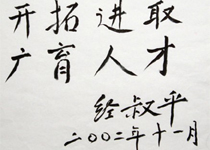 开拓进取
广育人才
经叔平
二〇〇二年十一月